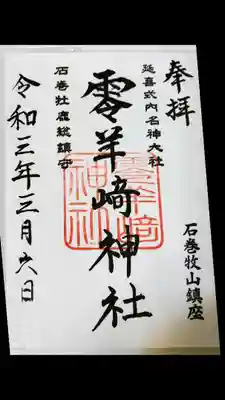 奉拝
石巻牧山鎮座
延喜式内名神大社
零羊崎神社
零羊崎神社
石巻牡鹿総鎮守
令和三年三月六日